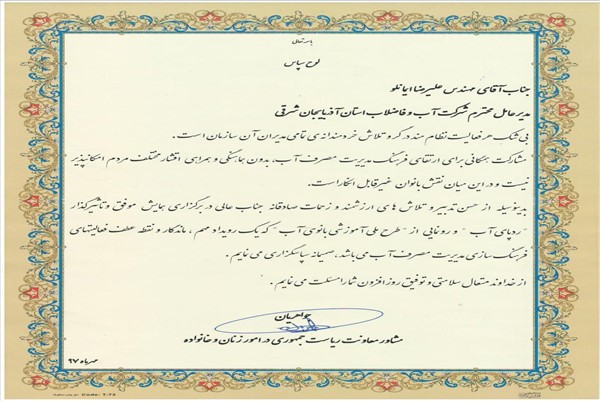 باسمه تعالی
لوح سپاس
جناب آقای مهندس علیرضا ایمانلو
مدیرعامل محترم شرکت آب و فاضلاب استان آذربایجان شرقی
بی شک هر فعالیت نظام مند در گرو تلاش خردمندانه ی تمامی مدیران آن سازمان است.
مشارکت همگانی برای ارتقای فرهنگ مدیریت مصرف آب، بدون هماهنگی و همراهی اقشار مختلف مردم امکانپذیر
نیست و در این میان نقش بانوان غیرقابل انکار است.
بدینوسیله از حسن تدبیر و تلاش های ارزشمند و زحمات صادقانه جناب عالی در برگزاری همایش موفق و تاثیرگذار
"ردپای آب" و رونمایی از "طرح ملی آموزشی بانوی آب" که یک رویداد مهم، ماندگار و نقطه عطف فعالیتهای
فرهنگ سازی مدیریت مصرف آب می باشد، صمیمانه سپاسگزاری می نمایم.
از خداوند متعال سلامتی و توفیق روزافزون شما را مسئلت می نمایم.
جواهریان
مشاور معاونت ریاست جمهوری در امور زنان و خانواده
مهرماه ۹۷
Code: T-73